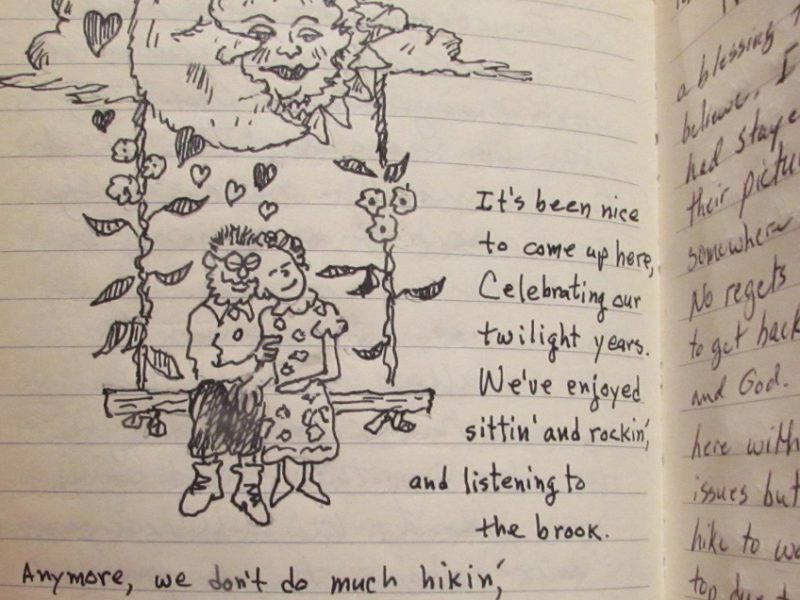 It's been nice
to come up here,
Celebrating our
twilight years.
We've enjoyed
sittin' and rockin',
and listening to
the brook.
Anymore, we don't do much hikin',
a blessing
believe. I
had
their
somewhere
No regets
to get back
and God.
here with
issues but
hike to
top